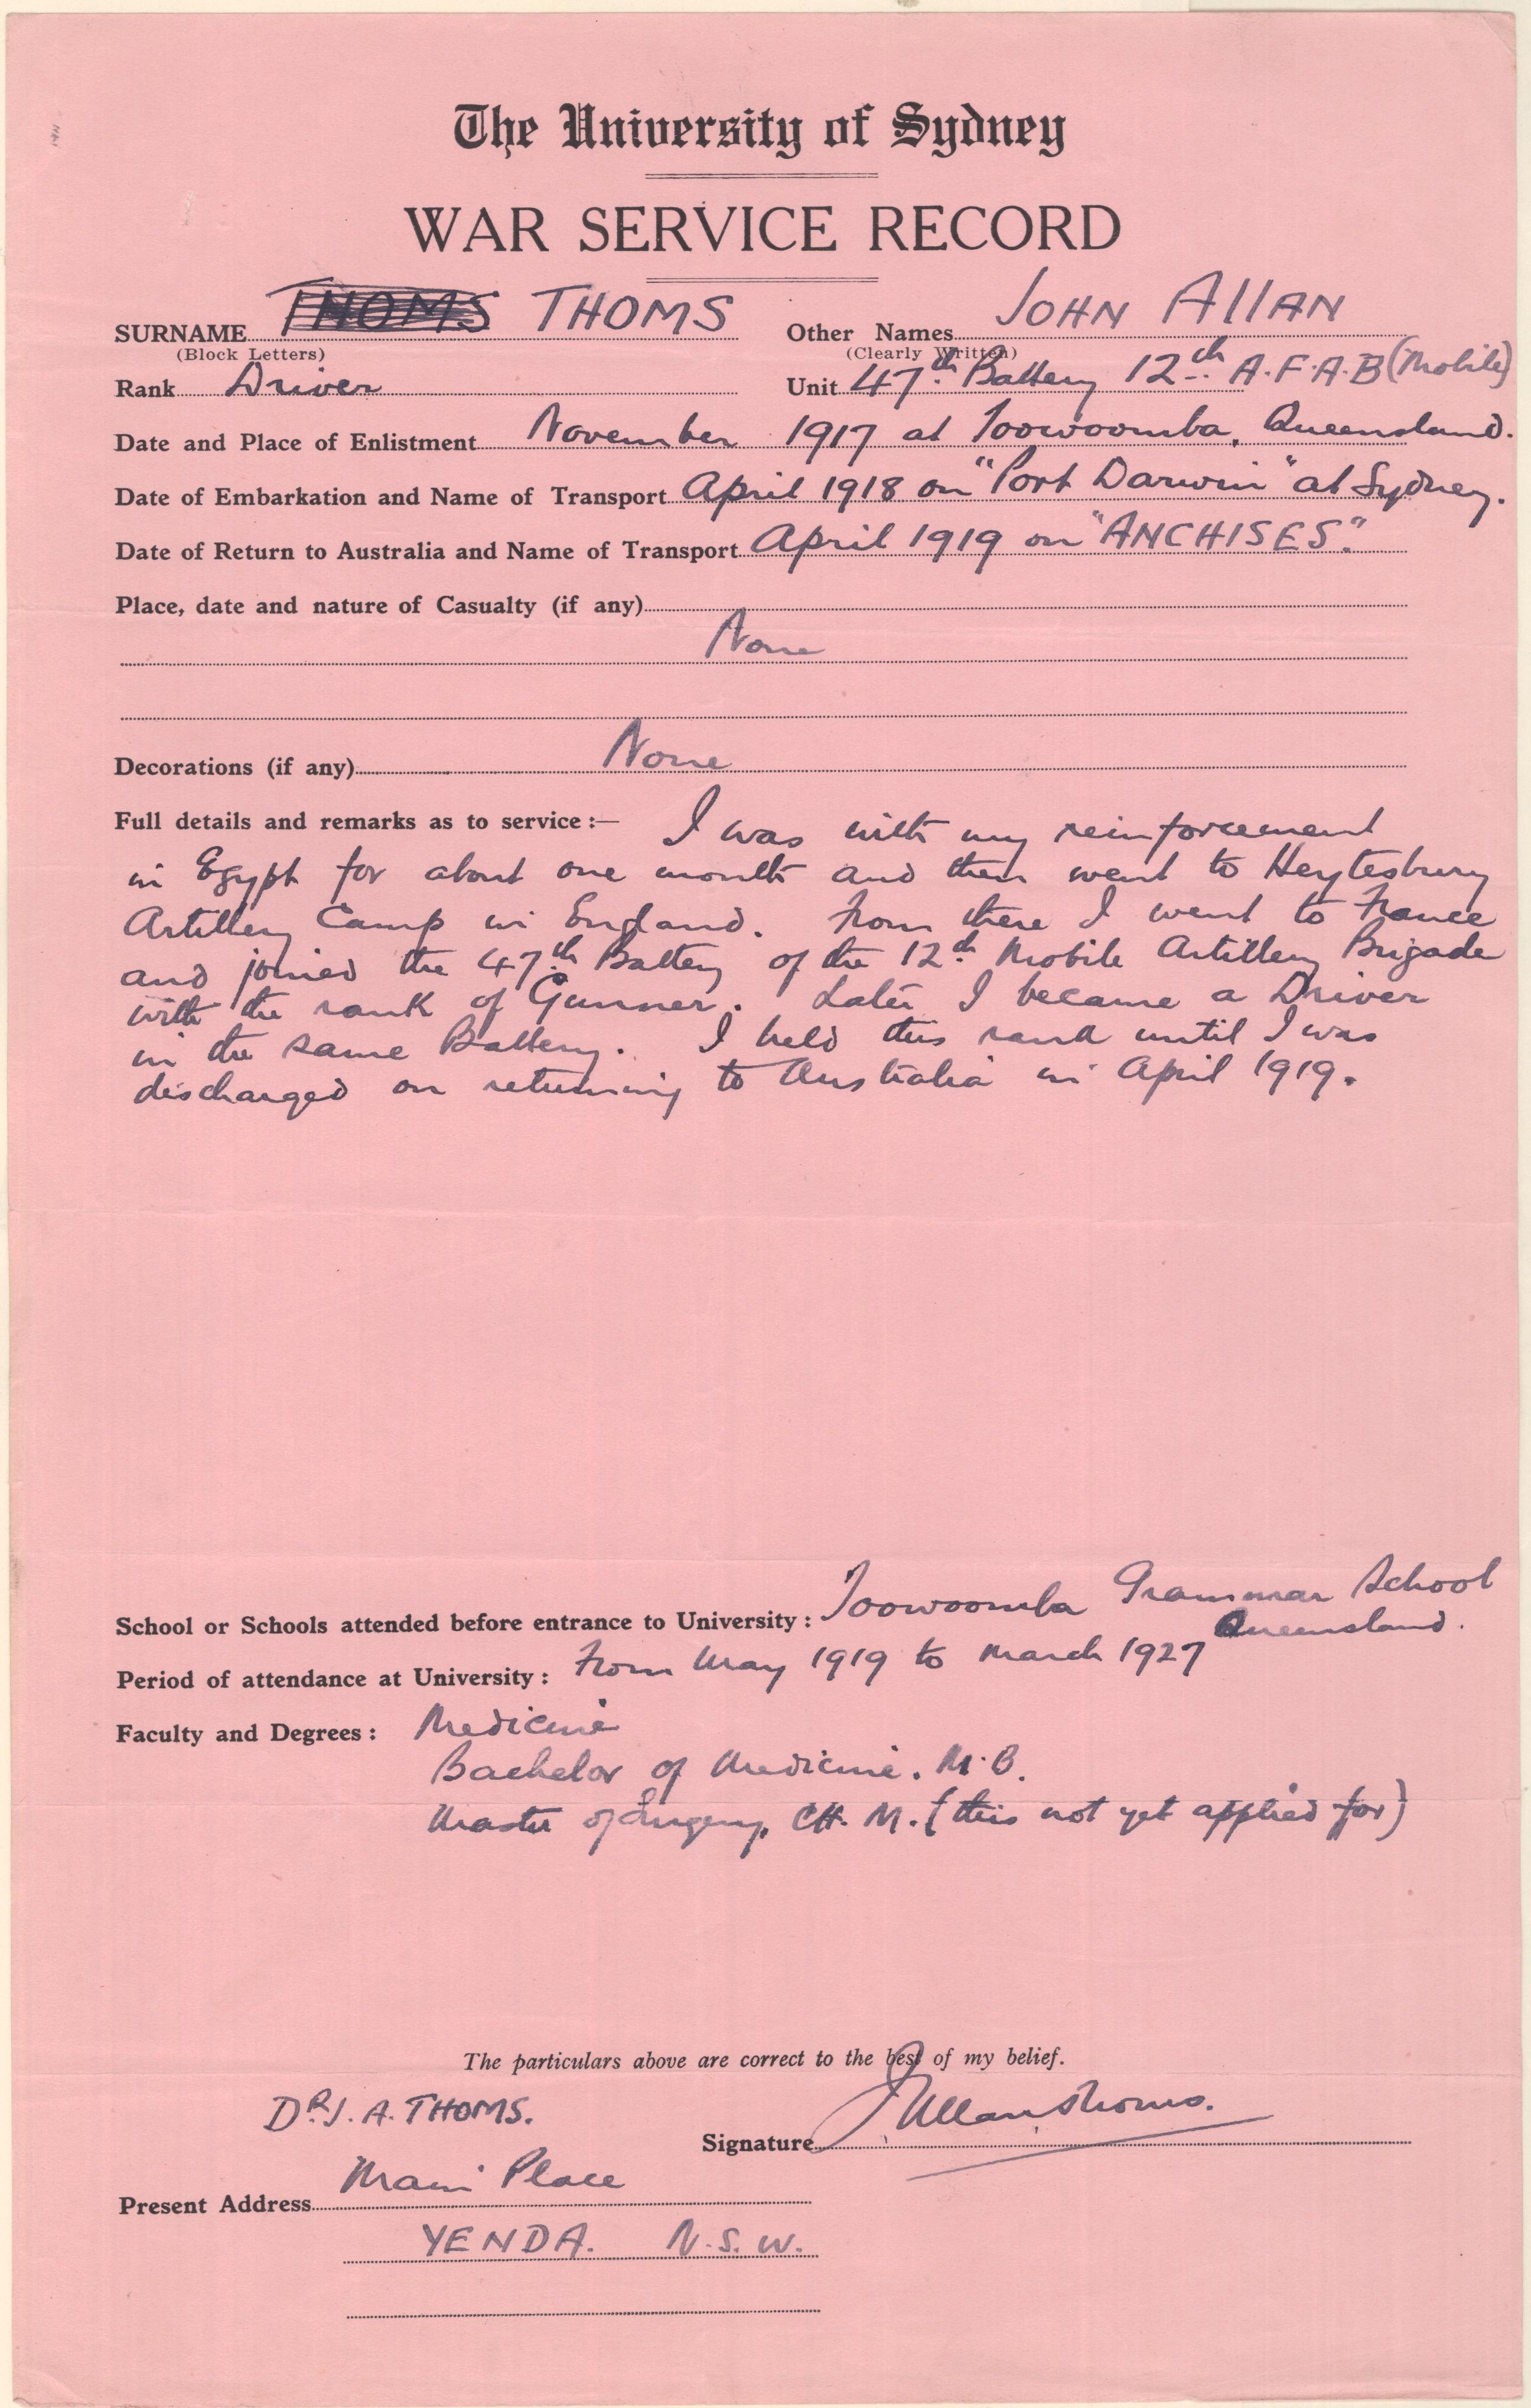 The University of Sydney
WAR SERVICE RECORD
SURNAME THOMS THOMS Other Names JOHN AllAN
(Block Letters) (Clearly Written)
Rank Driver Unit 47th Battery 12th A.F.A.B (Mobile)
Date and Place of Enlistment November 1917 at Toowoomba, Queensland.
Date of Embarkation and Name of Transport April 1918 on "Port Darwin" at Sydney.
Date of Return to Australia and Name of Transport April 1919 on "ANCHISES".
Place, date and nature of Casualty (if any)
None
Decorations (if any) None
Full details and remarks as to service:— I was with my reinforcement
in Egypt for about one month and then went to Heytesbury
Artillery Camp in England. From there I went to France
and joined the 47th Battery of the 12th Mobile Artillery Brigade
with the rank of Gunner. Later I became a Driver
in the same Battery. I held this rank until I was
discharged on returning to Australia in April 1919.
School or Schools attended before entrance to University: Toowoomba Grammar School
Queensland.
Period of attendance at University: From May 1919 to March 1927
Faculty and Degrees: Medicine
Bachelor of Medicine. M.B.
Master of Surgery, CH. M. (this not yet applied for)
The particulars above are correct to the best of my belief.
DR J. A. THOMS.
Signature J. Allan Thoms.
Present Address Main Place
YENDA. N.S.W.